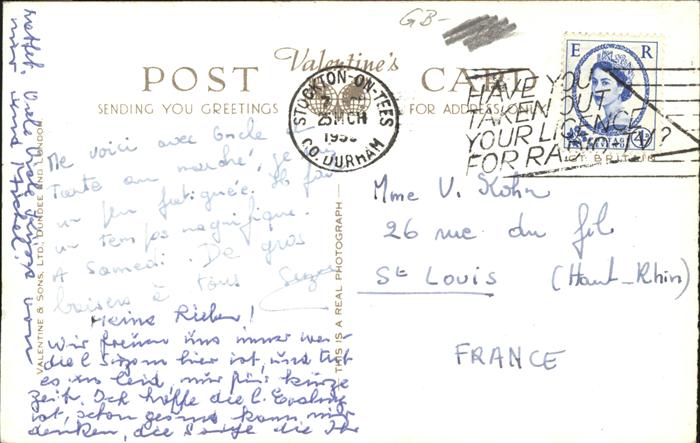 GB-
Valentine's
POST CARD
SENDING YOU GREETINGS
FOR ADDRESS ONLY
STOCKTON-ON-TEES
25 MCH
195
CO. DURHAM
HAVE YOU
TAKEN OUT
YOUR LICENCE
FOR RADIO ?
E R
4D
Me voici avec Oncle
Tante au marché, je
un peu fatiguée. Il fait
un temps magnifique.
A Samedi. De gros
baisers à tous
Meine Lieben!
Wir freuen uns immer wenn
die l. Suzon hier ist, und tut
es uns leid, nur für kurze
Zeit. Ich hoffe die l. Evelyne
ist, schon gesund kann mir
denken, die Sorge die Ihr
hattet. Viele
Mme V. Kohn
26 rue du fil
St Louis (Haut-Rhin)
FRANCE
VALENTINE & SONS, LTD., DUNDEE AND LONDON
THIS IS A REAL PHOTOGRAPH